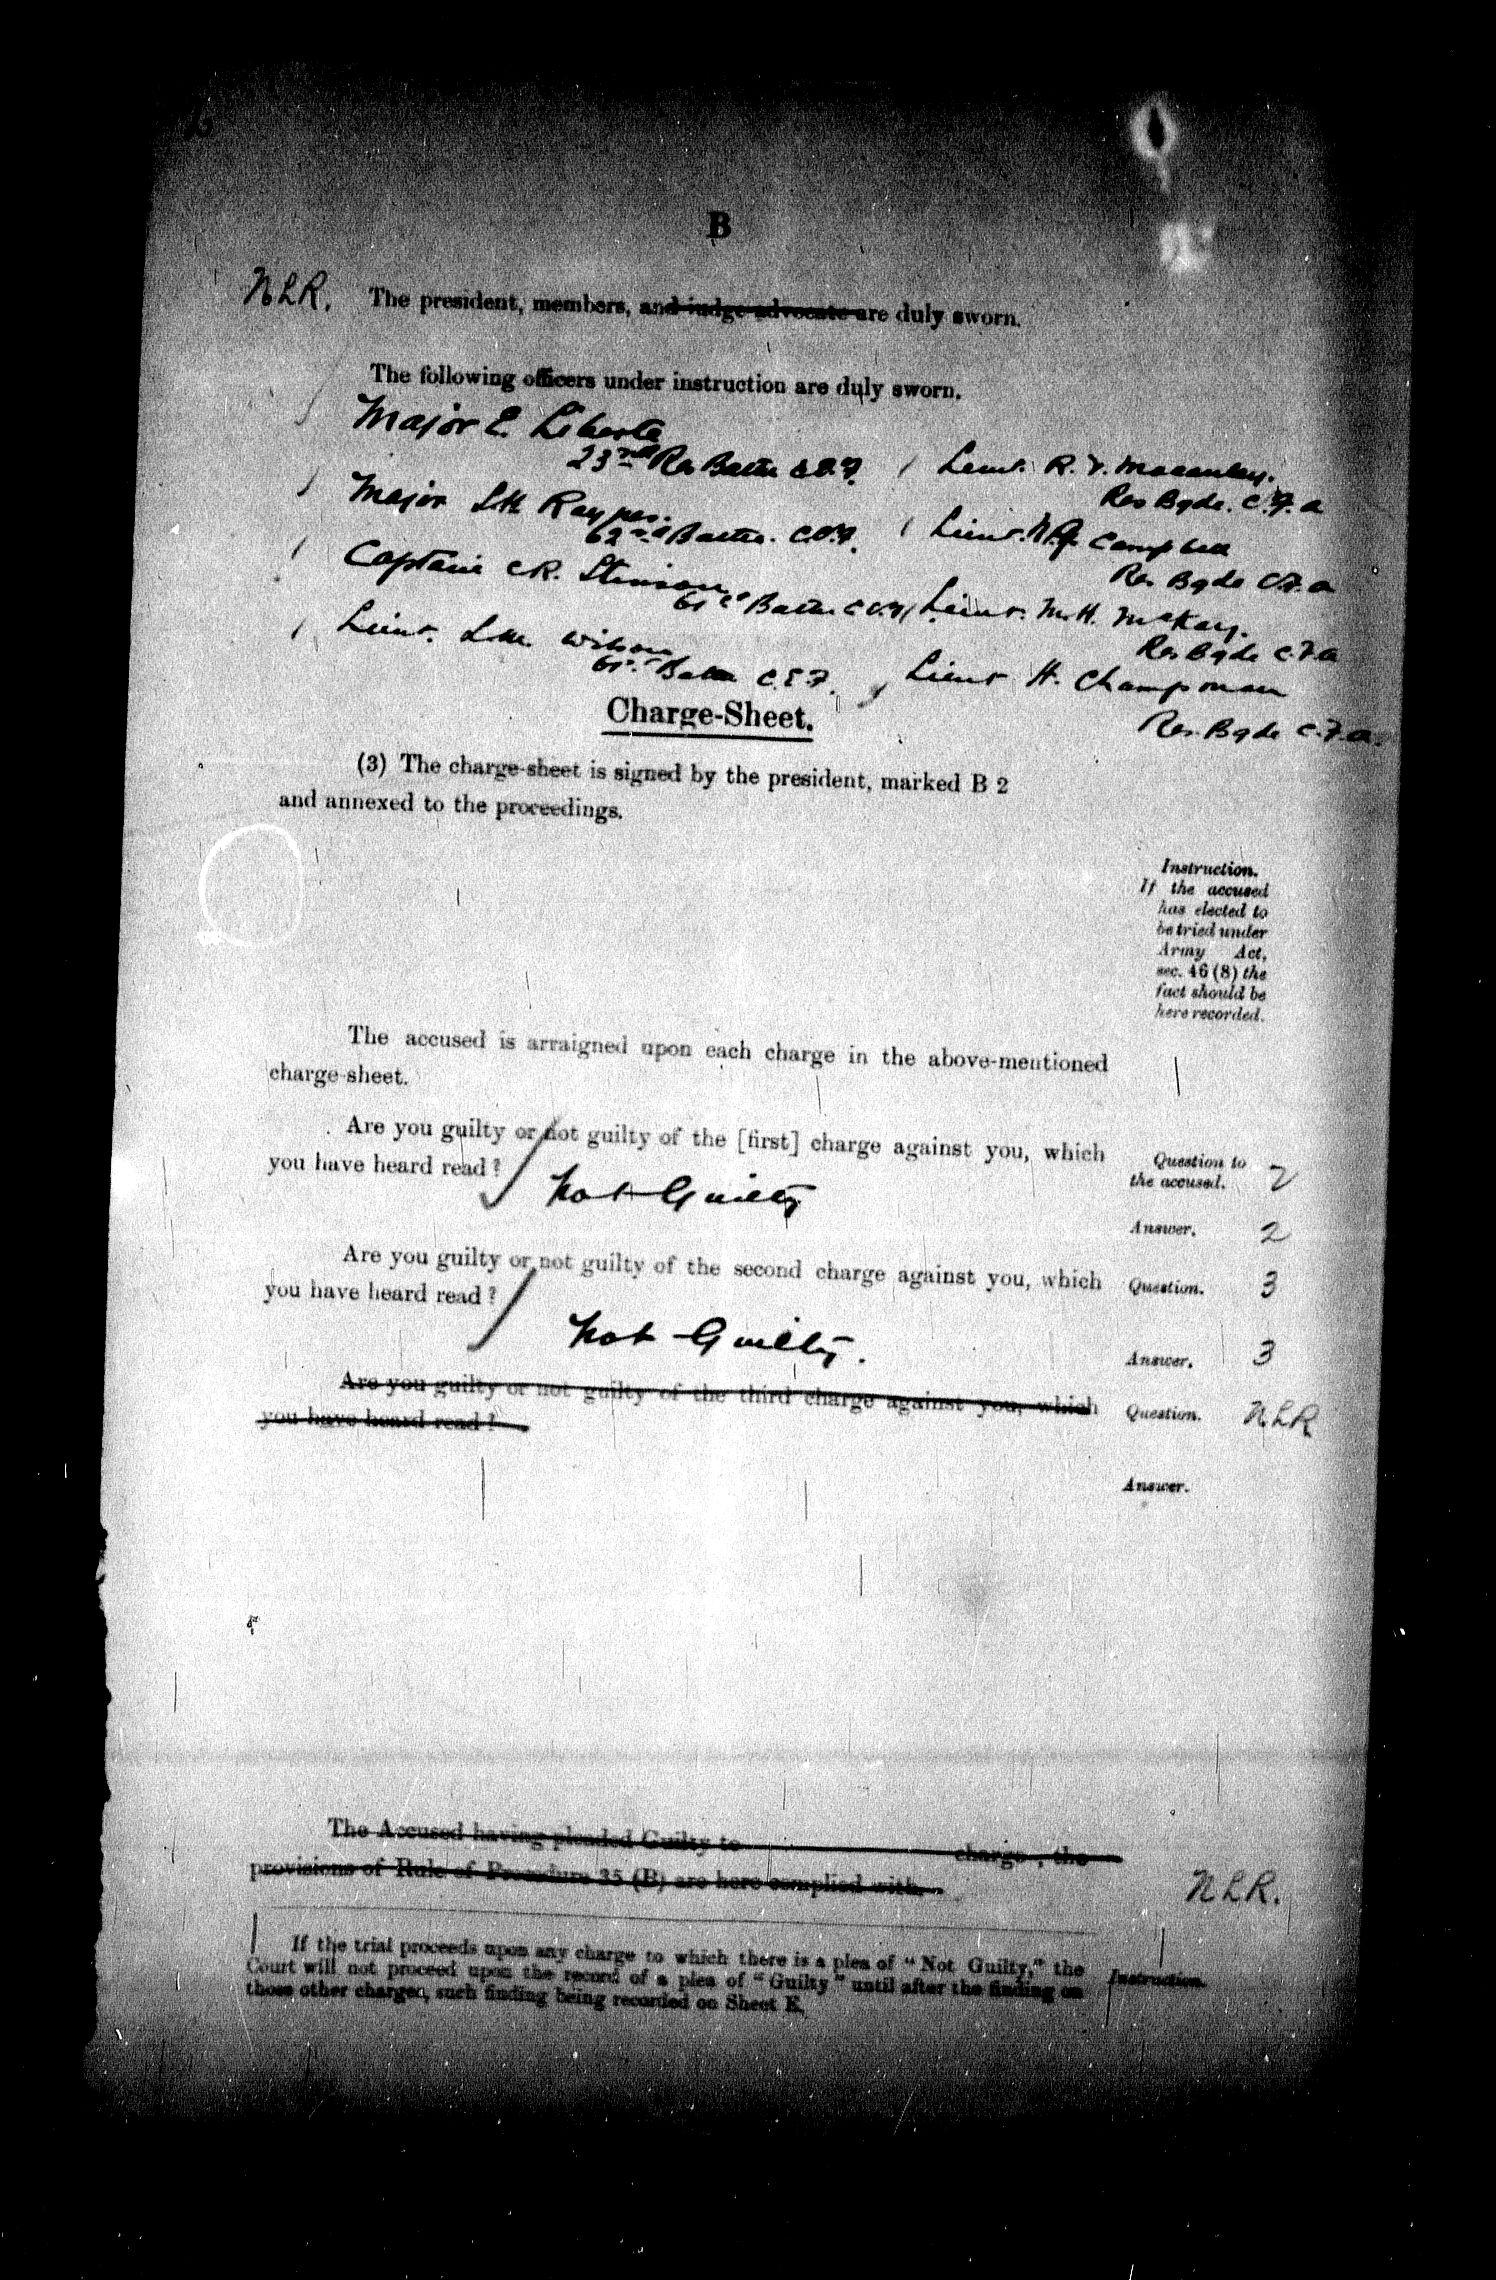 B
NLR. The president, members, and judge advocate are duly sworn.
The following officers under instruction are duly sworn.
Major E. Liberte
23rd Res Battn C.E.F.
Major
62nd Battn. C.E.F.
Captain C.R. Stinson
61st Battn C.E.F.
Lieut. L.M. Wilson
61st Battn C.E.F.
Lieut. R. V. Macaulay.
Res Bgde. C.F.A
Lieut. Campbell
Res Bgde C.F.A
Lieut. M.H. McKay.
Res Bgde C.F.A
Lieut H. Champman
Res. Bgde C.F.A.
Charge-Sheet.
(3) The charge-sheet is signed by the president, marked B 2
and annexed to the proceedings.
Instruction.
If the accused
has elected to
be tried under
Army Act,
sec. 46 (8) the
fact should be
here recorded.
The accused is arraigned upon each charge in the above-mentioned
charge-sheet.
Are you guilty or not guilty of the [first] charge against you, which
you have heard read?
Question to
the accused. 2
Not Guilty
Answer. 2
Are you guilty or not guilty of the second charge against you, which
you have heard read?
Question. 3
Not Guilty.
Answer. 3
Are you guilty or not guilty of the third charge against you, which
you have heard read?
Question. NLR
Answer.
The Accused having pleaded Guilty to charge , the
provisions of Rule of Procedure 35 (B) are here complied with.
NLR.
If the trial proceeds upon any charge to which there is a plea of "Not Guilty," the
Court will not proceed upon the record of a plea of "Guilty" until after the finding on
those other charges, such finding being recorded on Sheet E.
Instruction.